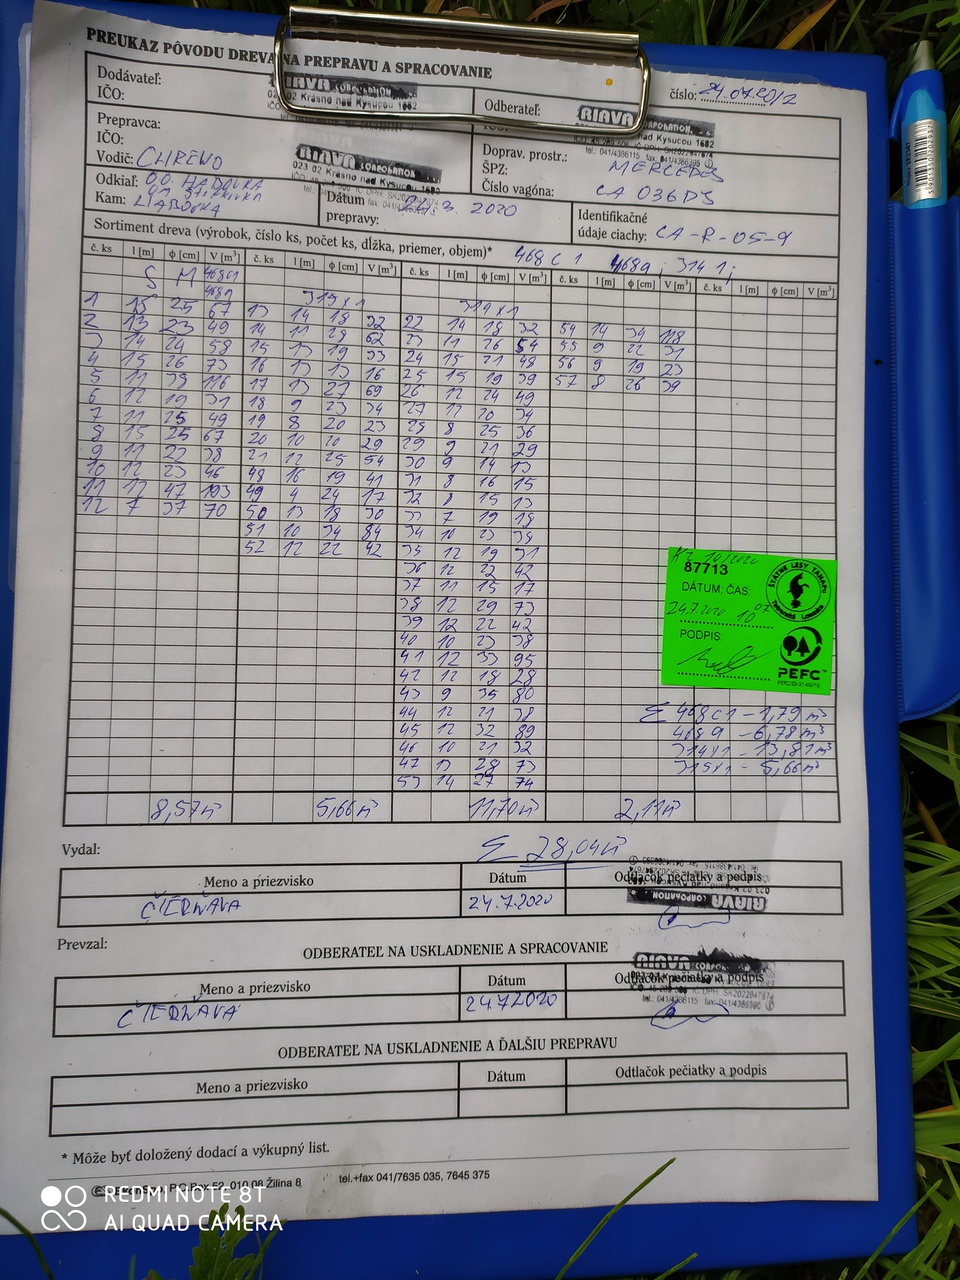 PREUKAZ PÔVODU DREVA NA PREPRAVU A SPRACOVANIE
Dodávateľ:
IČO:
RIAVA CORPORATION
023 02 Krásno nad Kysucou 1682
Odberateľ:
RIAVA CORPORATION
nad Kysucou 1682
tel.: 041/4386115
číslo: 24.07.20/2
Prepravca:
IČO:
Vodič: CHRENO
RIAVA CORPORATION
023 02 Krásno nad Kysucou 1682
Doprav. prostr.: MERCEDES
ŠPZ:
Číslo vagóna: CA 036DS
Odkiaľ: O.O.
Kam:
Dátum
prepravy: 2020
Identifikačné
údaje ciachy: CA-R-05-9
Sortiment dreva (výrobok, číslo ks, počet ks, dĺžka, priemer, objem)* 468 C 1 468q; 314 1;
č. ks l [m] ϕ [cm] V [m³] č. ks l [m] ϕ [cm] V [m³] č. ks l [m] ϕ [cm] V [m³] č. ks l [m] ϕ [cm] V [m³] č. ks l [m] ϕ [cm] V [m³]
S M 468C1
468q 315x1 314x1
1 15 25 67 13 14 18 32 22 14 18 32 54 14 34 118
2 13 23 49 14 11 28 62 23 11 26 54 55 9 22 31
3 14 24 58 15 13 19 33 24 15 21 48 56 9 19 23
4 15 26 73 16 13 13 16 25 15 19 39 57 8 26 39
5 11 39 116 17 13 27 69 26 12 24 49
6 12 19 31 18 9 23 34 27 11 20 34
7 11 25 49 19 8 20 23 28 8 25 36
8 15 25 67 20 10 20 29 29 9 21 29
9 11 23 38 21 12 25 54 30 9 14 13
10 12 23 46 48 16 19 41 31 8 16 15
11 12 47 193 49 4 24 17 32 8 15 13
12 7 37 70 50 13 18 30 33 7 19 18
51 10 34 84 34 10 23 38
52 12 22 42 35 12 19 31
36 12 22 42
37 11 15 17
38 12 29 73
39 12 22 42
40 10 23 38
41 12 33 95
42 12 18 28
43 9 35 80
44 12 21 38
45 12 32 89
46 10 21 32
47 13 28 73
53 14 27 74
87713
DÁTUM: ČAS:
24.7.2020 10 07
PODPIS:
ŠTÁTNE LESY TANAPU
Tatranská Lomnica
PEFC
Σ 468C1 - 1,79 m³
468q - 6,78 m³
314x1 - 13,81 m³
315x1 - 5,66 m³
8,57 m³ 5,66 m³ 11,70 m³ 2,11 m³
Σ 28,04 m³
Vydal:
Meno a priezvisko Dátum Odtlačok pečiatky a podpis
ČIERŇAVA 24.7.2020
RIAVA CORPORATION
Prevzal:
ODBERATEĽ NA USKLADNENIE A SPRACOVANIE
Meno a priezvisko Dátum Odtlačok pečiatky a podpis
ČIERŇAVA 24.7.2020
RIAVA CORPORATION
ODBERATEĽ NA USKLADNENIE A ĎALŠIU PREPRAVU
Meno a priezvisko Dátum Odtlačok pečiatky a podpis
* Môže byť doložený dodací a výkupný list.
P.O. Box 52, 010 08 Žilina 8 tel.+fax 041/7635 035, 7645 375
REDMI NOTE 8T
AI QUAD CAMERA